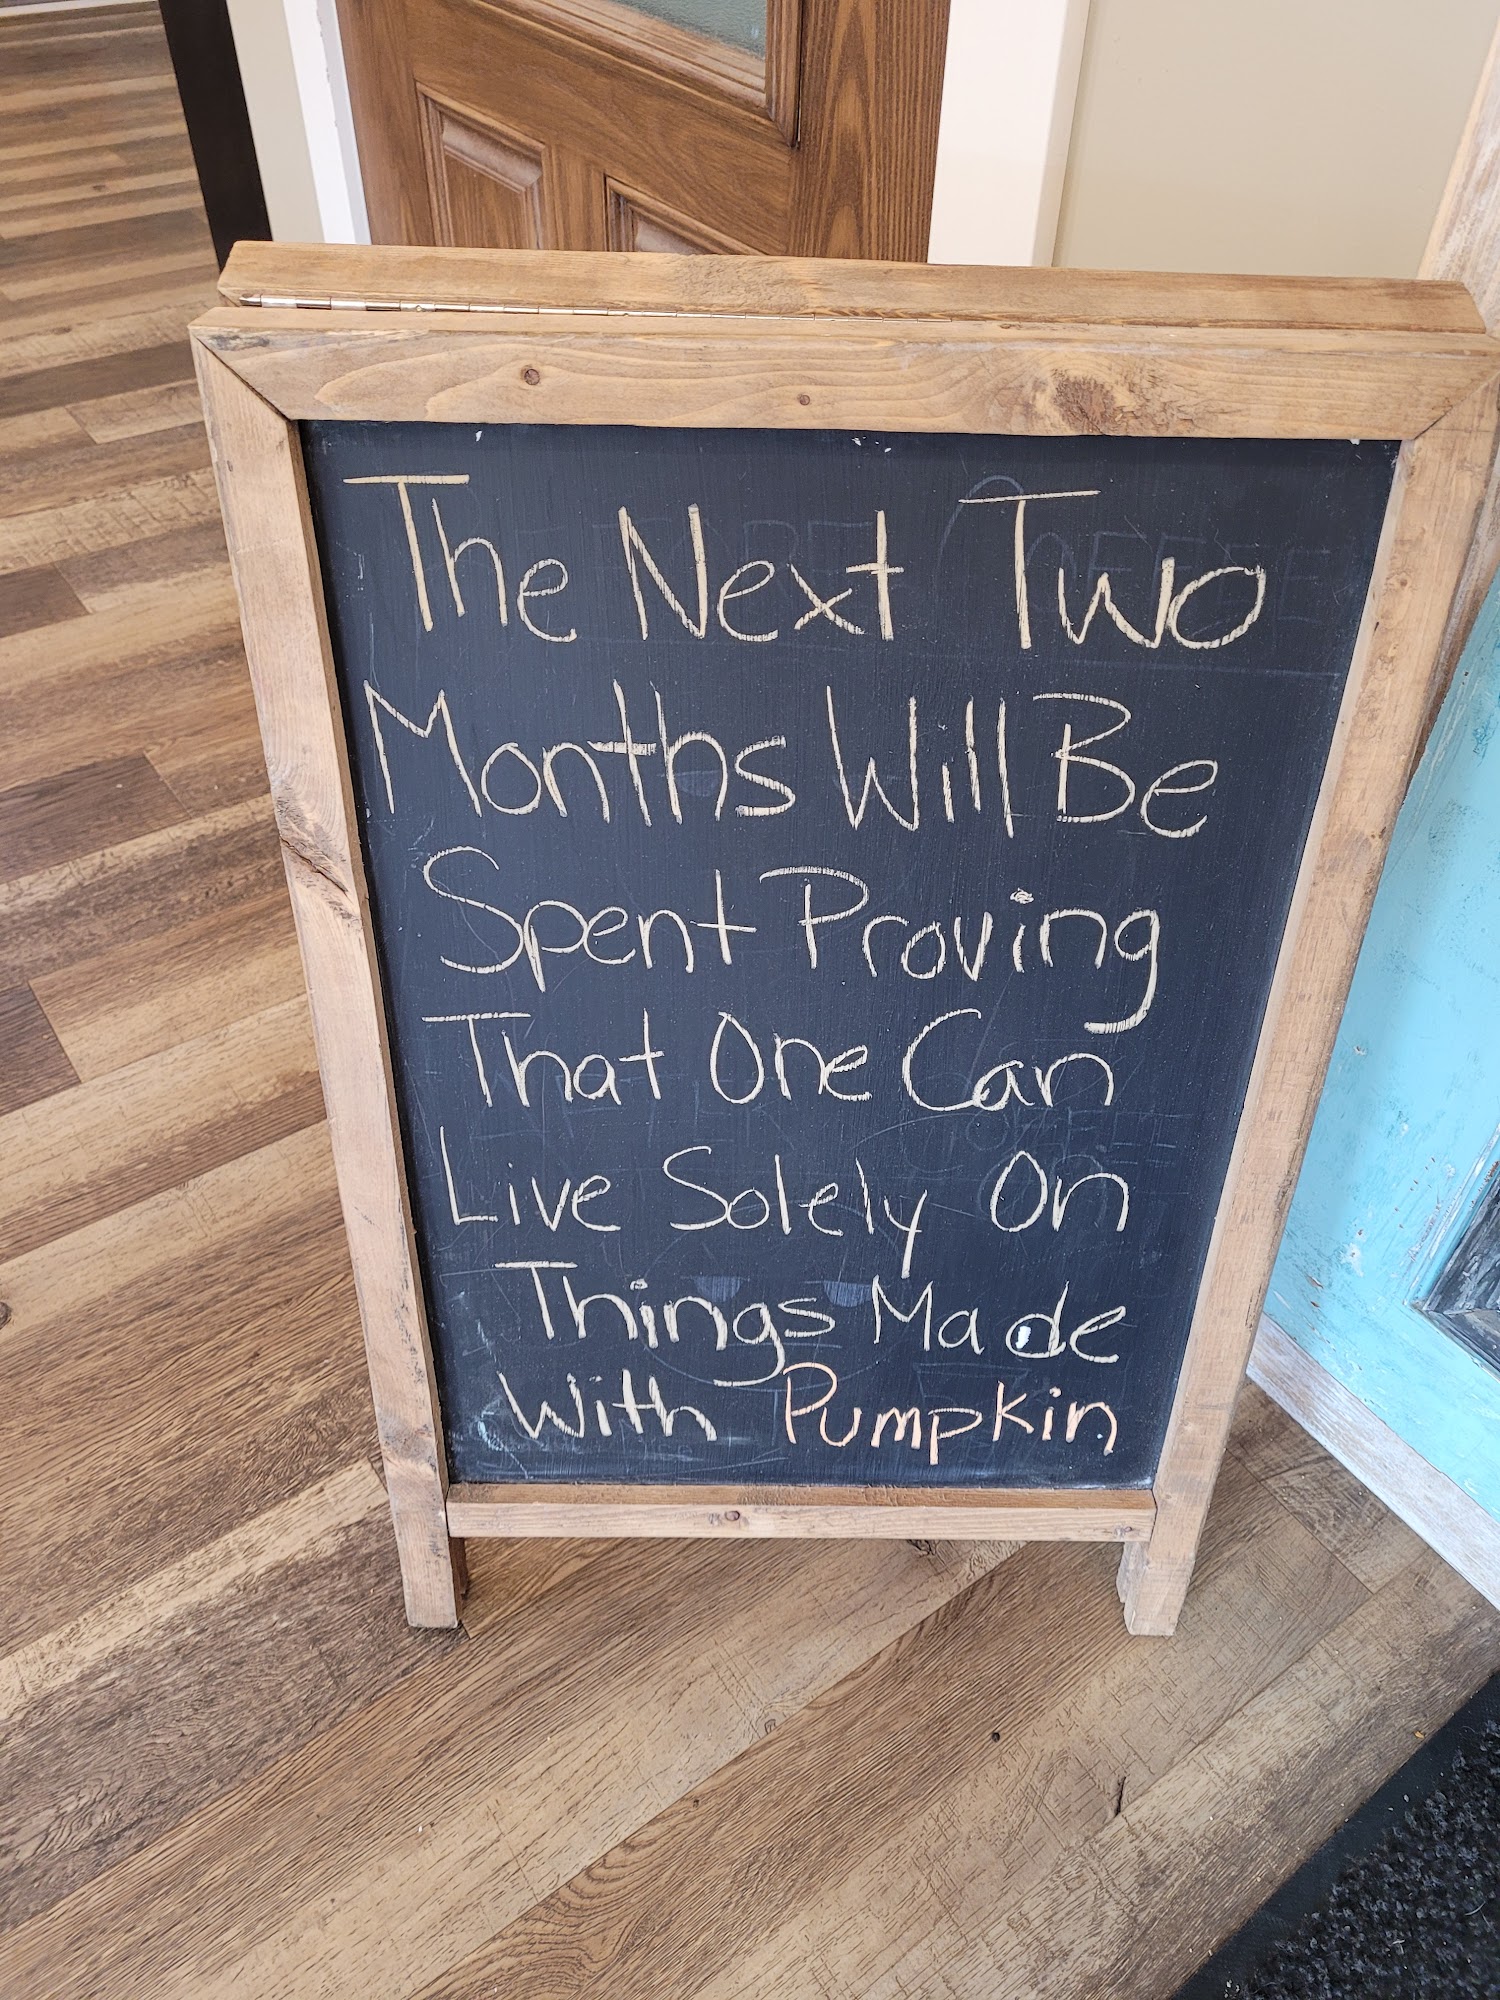 The Next Two
Months Will Be
Spent Proving
That One Can
Live Solely On
Things Made
With Pumpkin